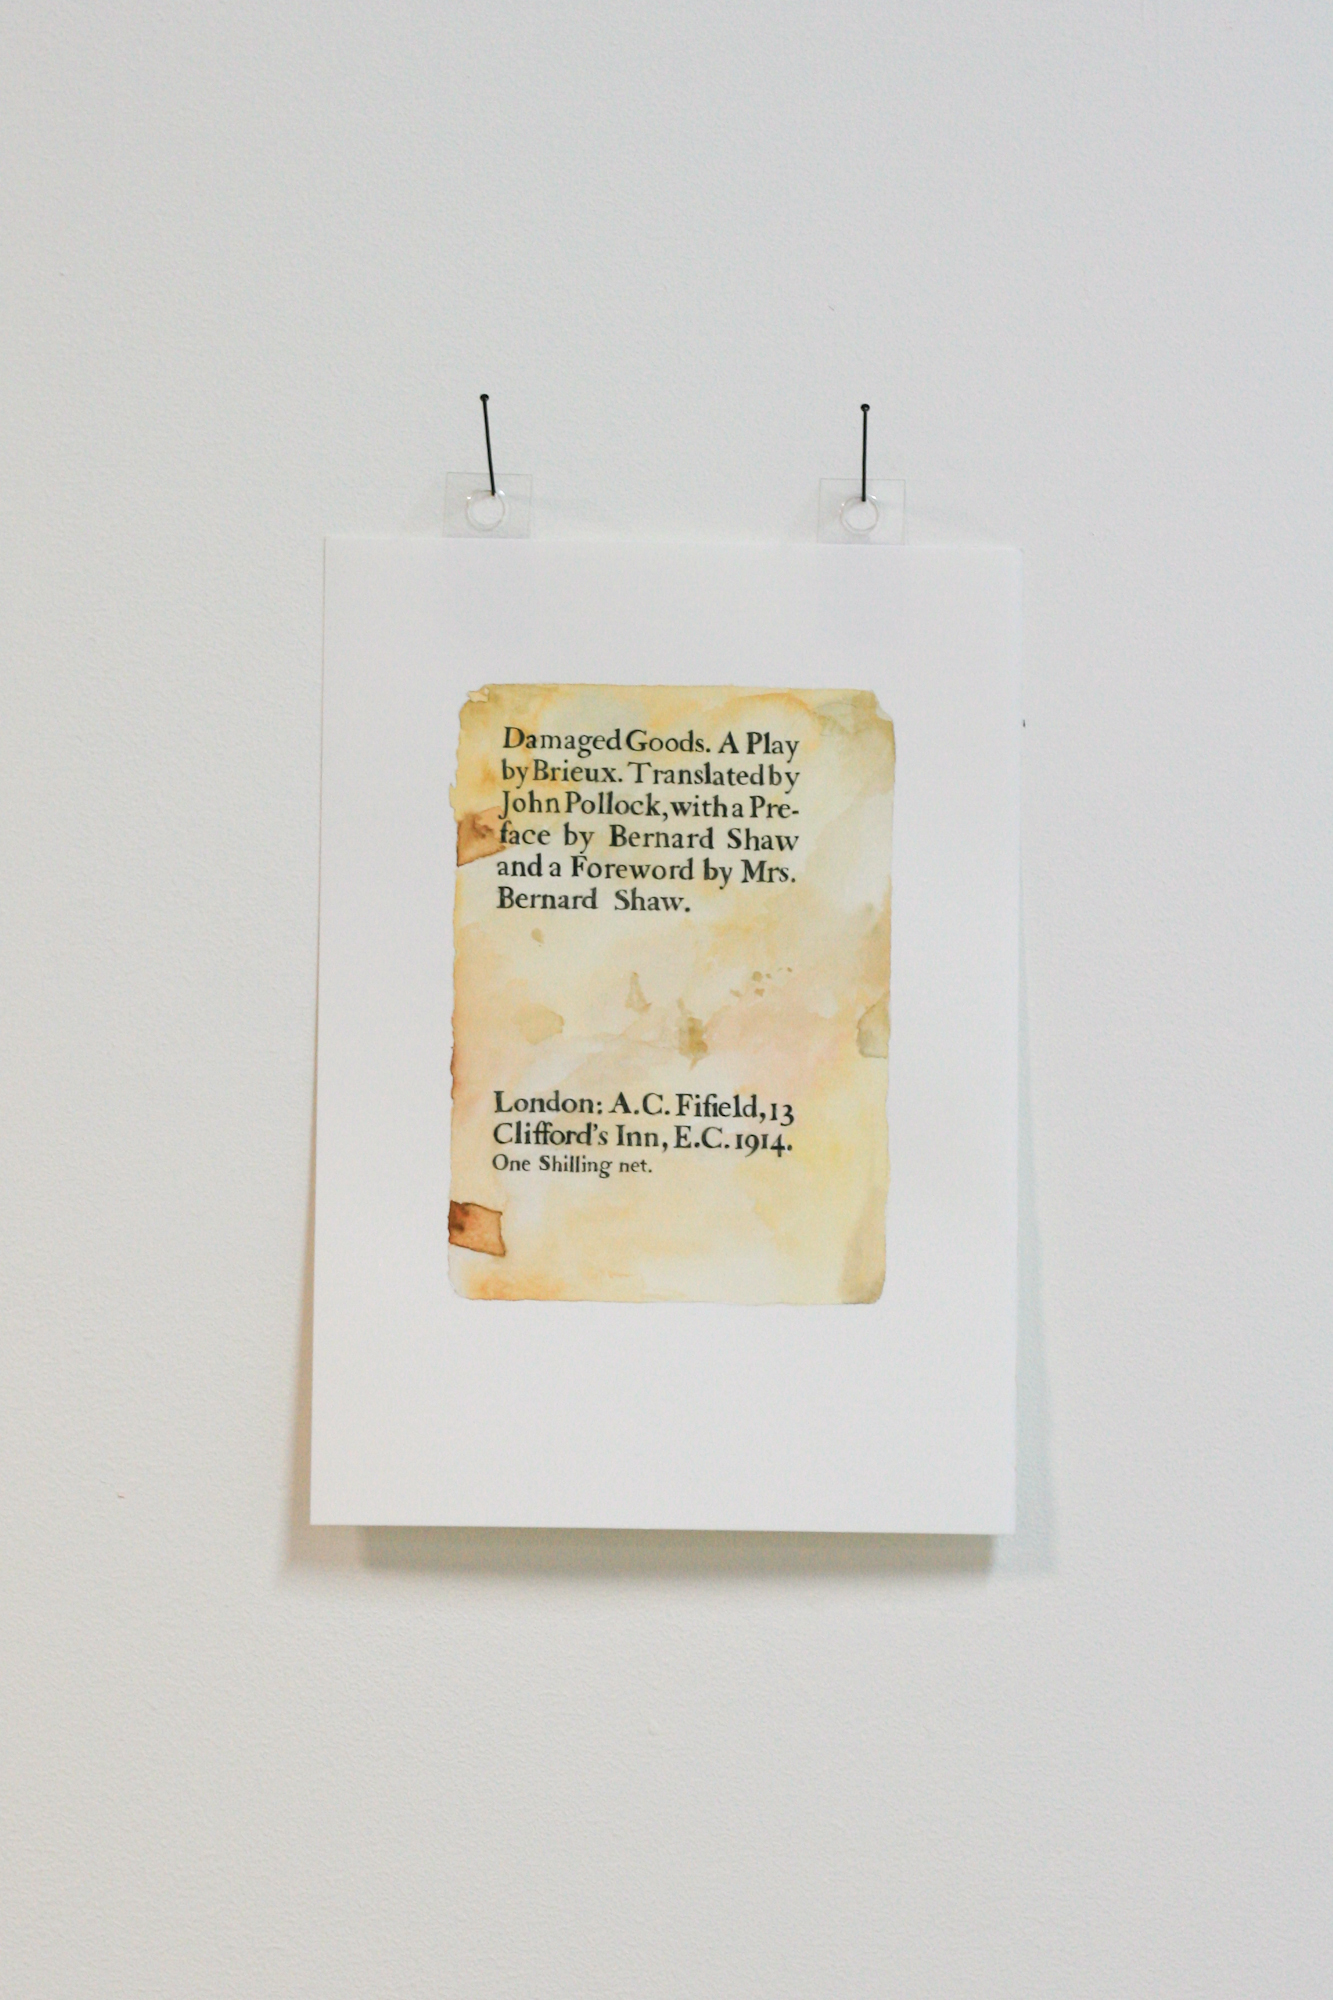 Damaged Goods. A Play
by Brieux. Translated by
John Pollock, with a Pre-
face by Bernard Shaw
and a Foreword by Mrs.
Bernard Shaw.
London: A.C. Fifield, 13
Clifford's Inn, E.C. 1914.
One Shilling net.